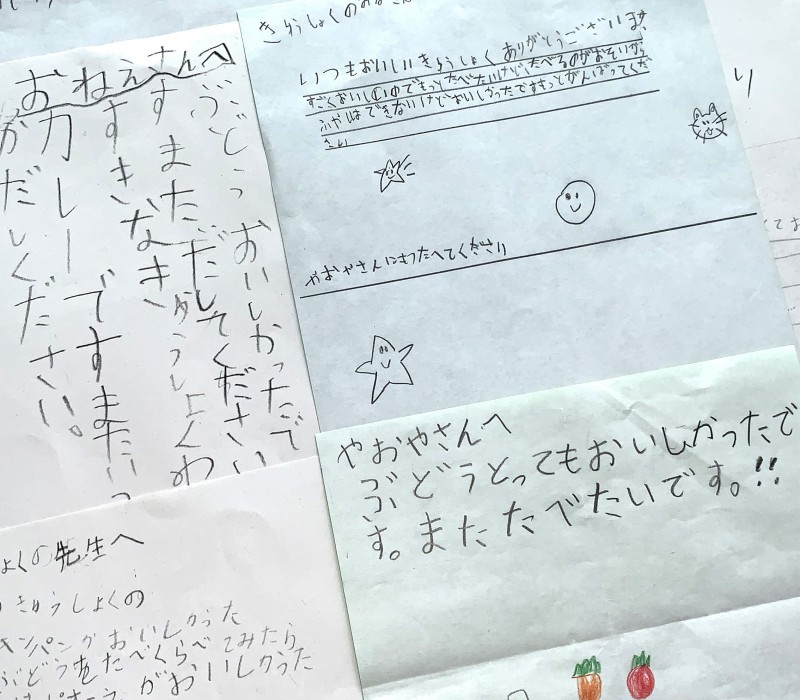 おねえさんへ
ぶどうおいしかったで
す まただしてください
すきなきゅうしょくわ
カレーですまたいつ
かだしてください。
いつもおいしいきゅうしょくありがとうございます
すごくおいしいのでもっとたべたいけど、たべるのがおそいから
ふやしはできないけどおいしかったですもっとがんばってくだ
さい
やおやさんにもつたへてくださり
やおやさんへ
ぶどうとってもおいしかったで
す。またたべたいです。!!
ょくの先生へ
きゅうしょくの
パンがおいしかった
ぶどうをたべくらべてみたら
がおいしかった
り